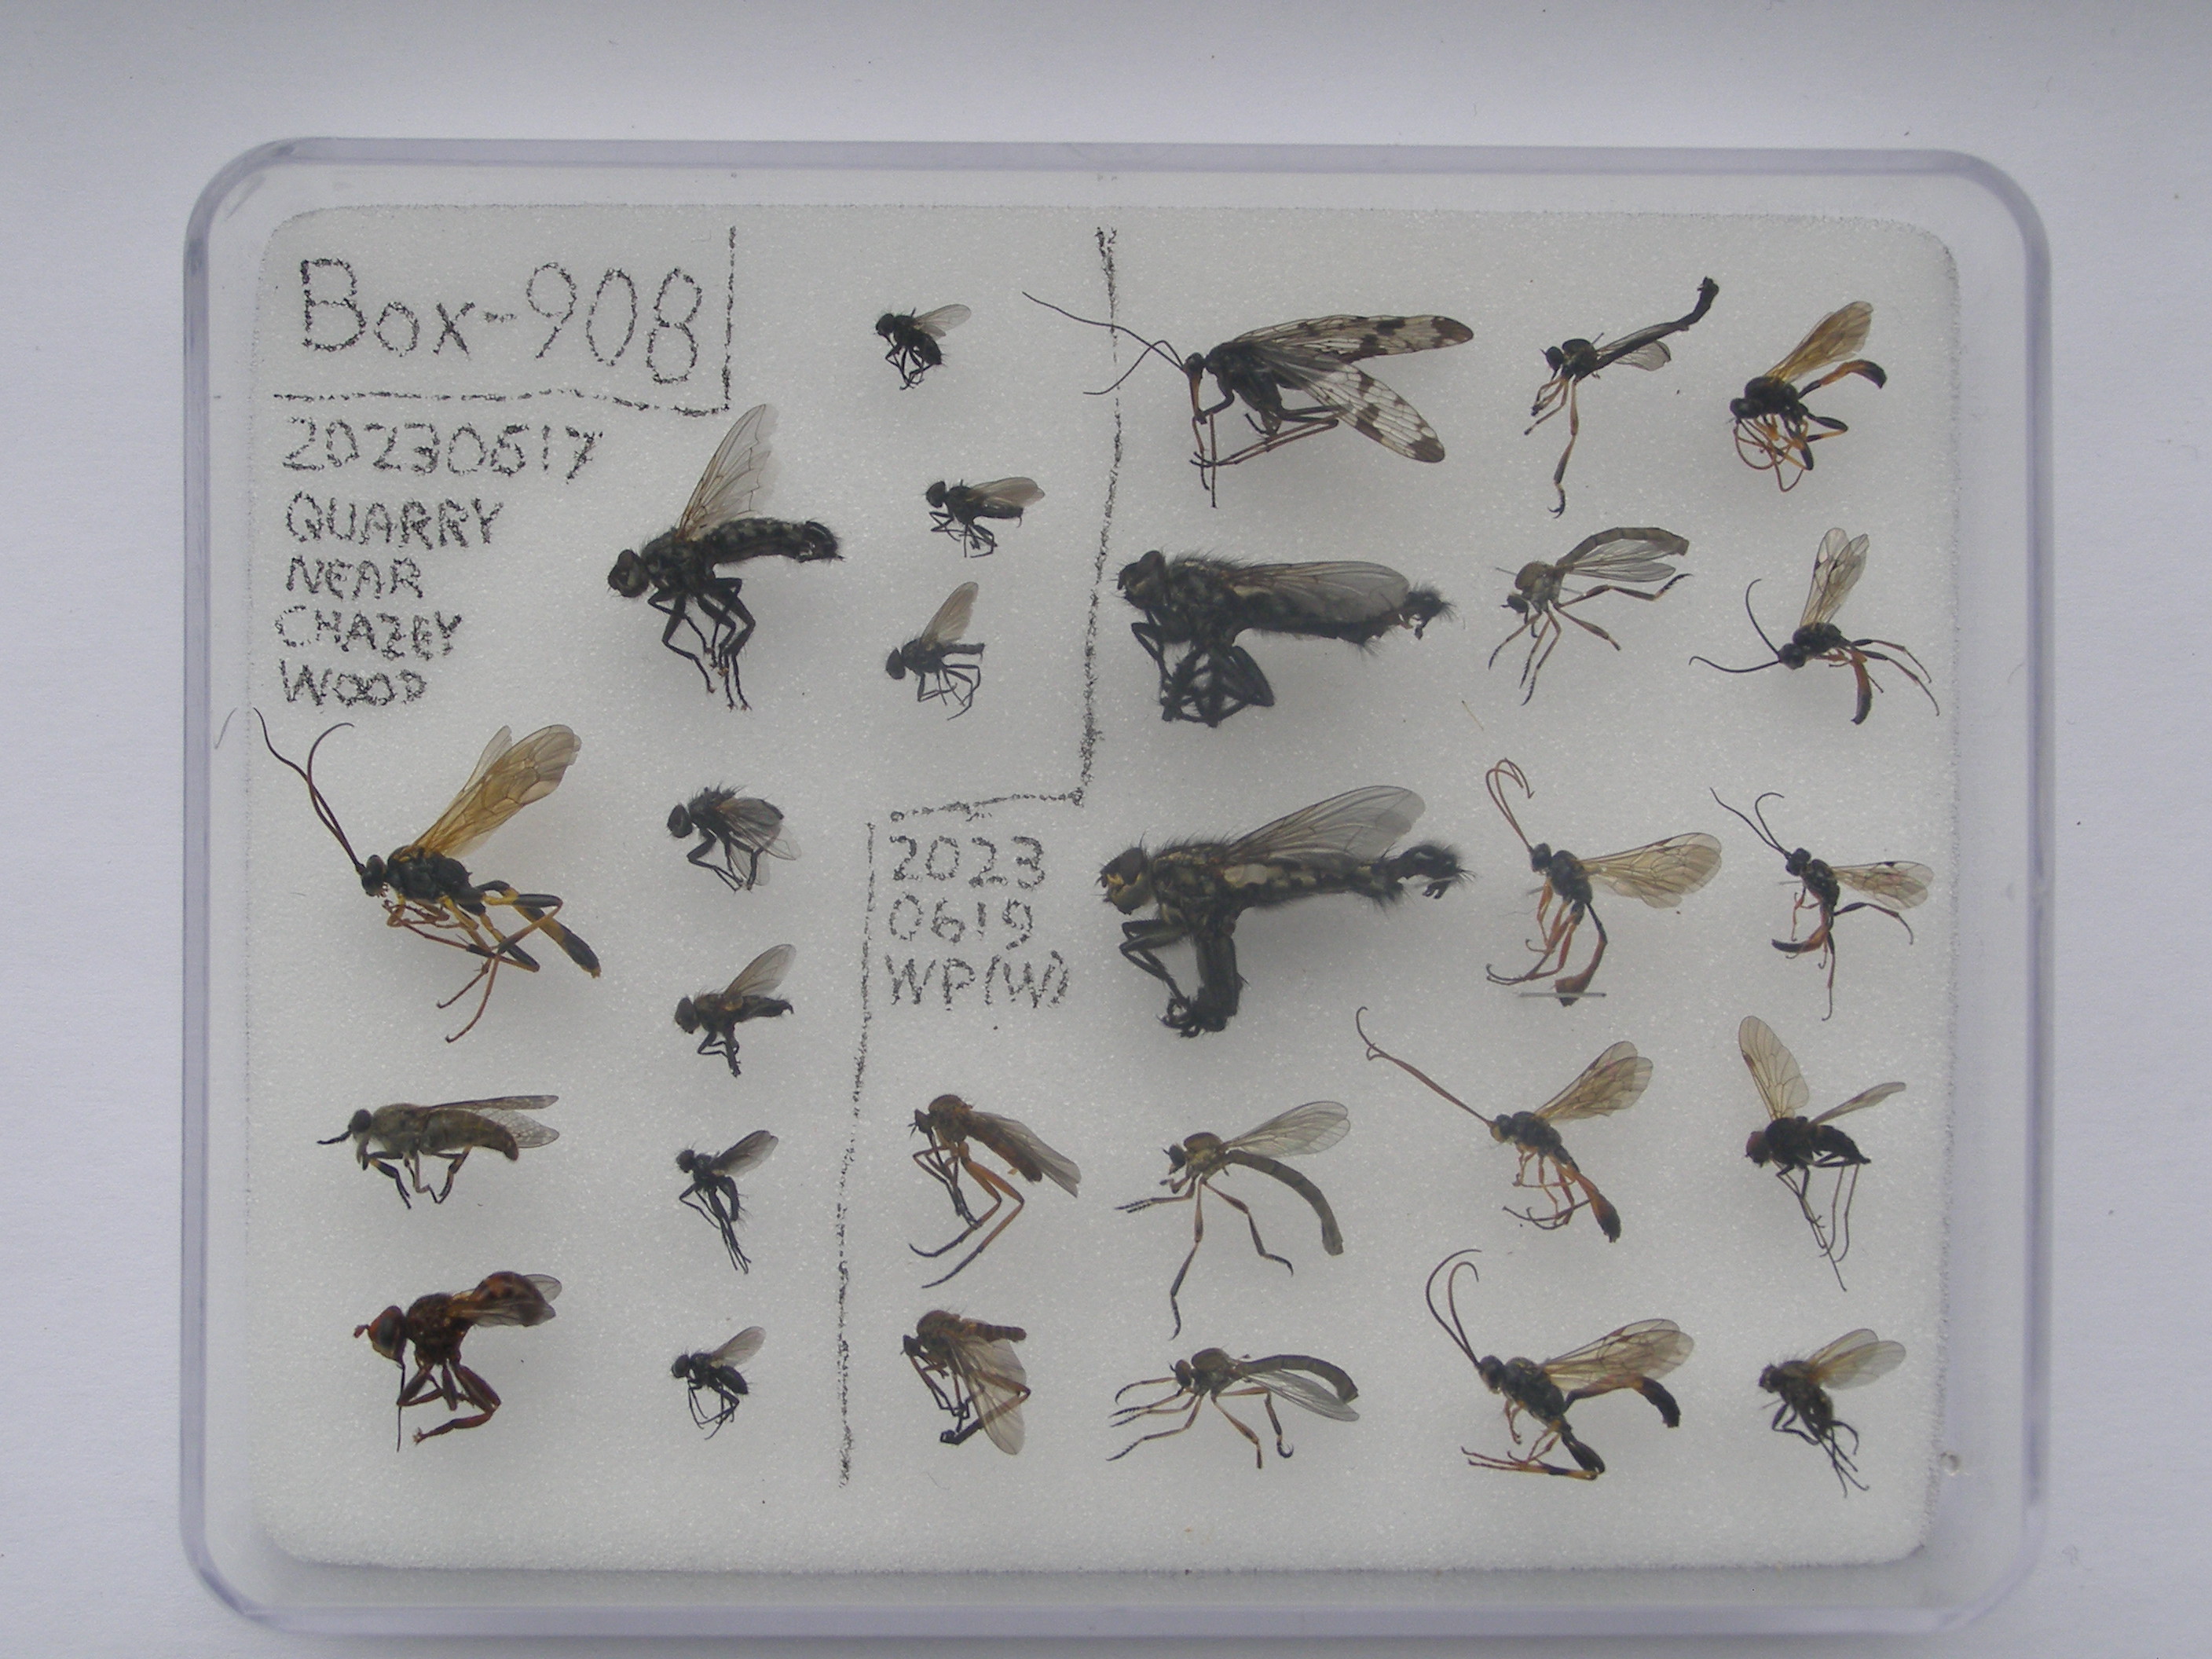 Box-908
20230617
QUARRY
NEAR
CHAZEY
WOOD
2023
0619
WP(W)